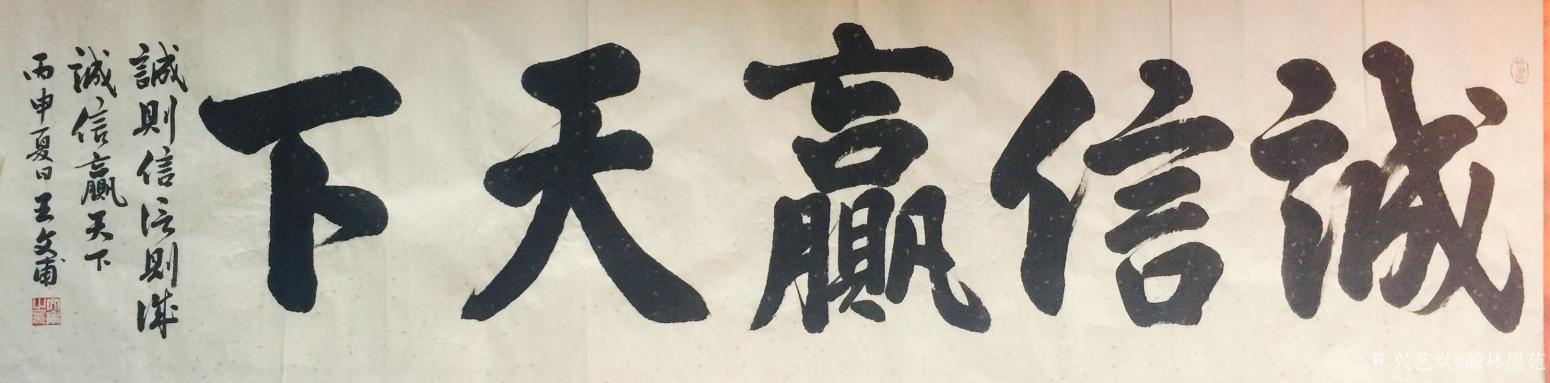 誠信贏天下
誠則信信則誠
誠信贏天下
丙申夏日王文甫
兴艺堂@瀚林墨苑